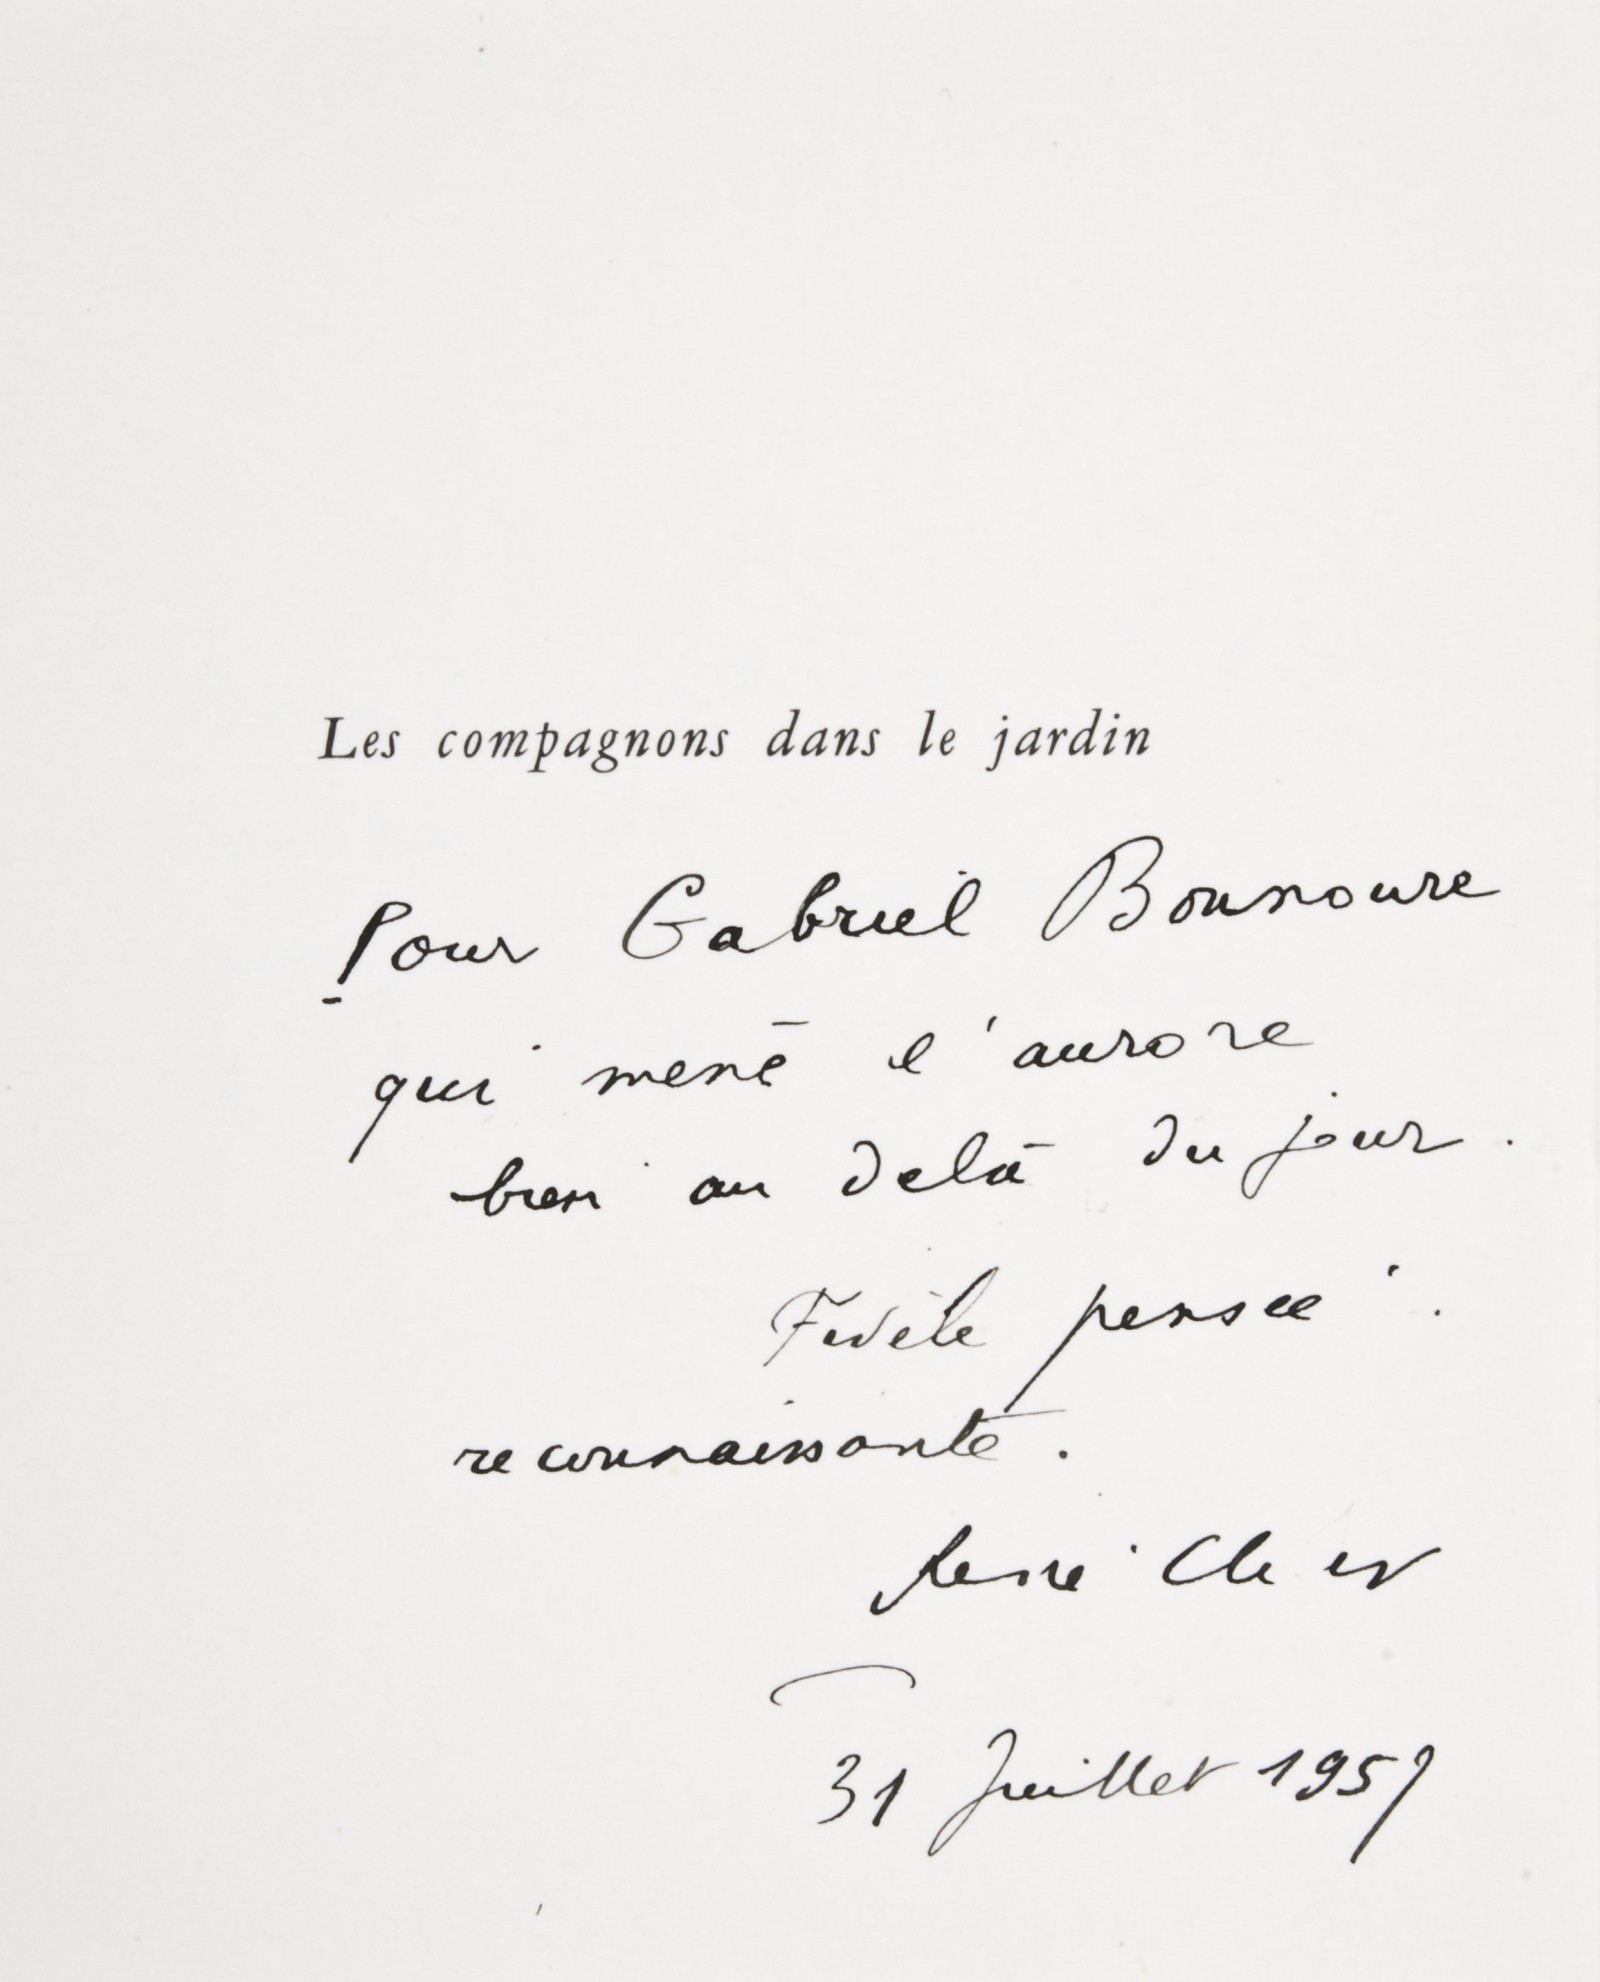 Les compagnons dans le jardin
Pour Gabriel Bounoure
qui mène l'aurore
bien au delà du jour.
Fidèle pensée
reconnaissante.
René Char
31 Juillet 1957